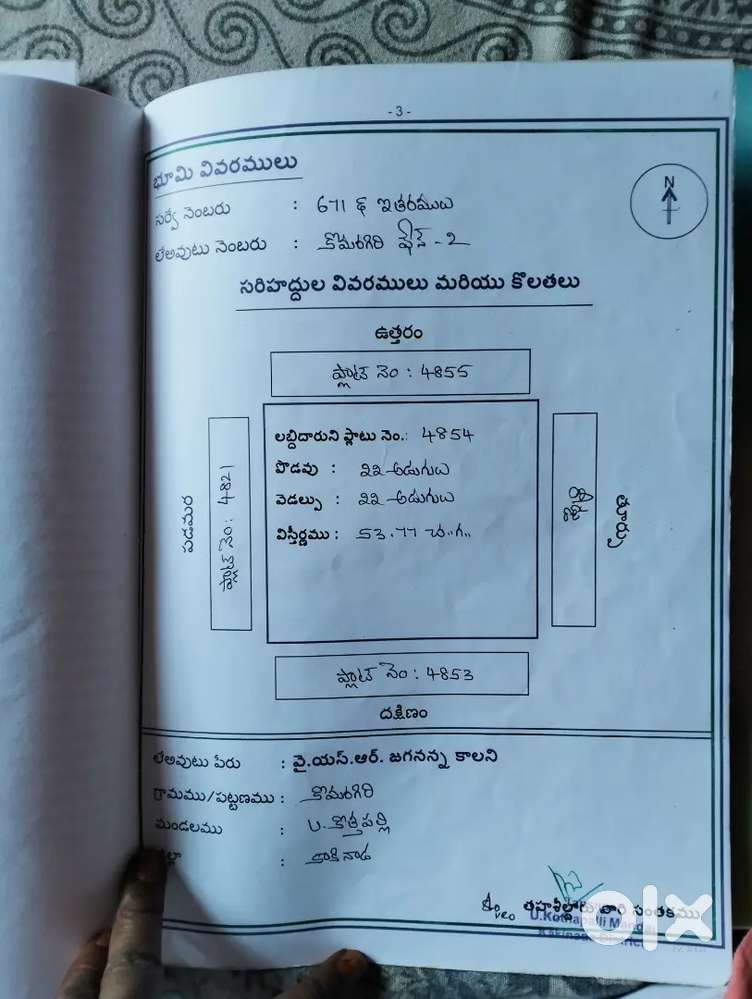 - 3 -
భూమి వివరములు
N
సర్వే నెంబరు : 671 & ఇతరములు
లేఅవుటు నెంబరు : కొమరగిరి ఫేస్ - 2
సరిహద్దుల వివరములు మరియు కొలతలు
ఉత్తరం
ప్లాట్ నెం : 4855
పడమర
ప్లాట్ నెం : 4821
లబ్దిదారుని ప్లాటు నెం.: 4854
పొడవు : 22 అడుగులు
వెడల్పు : 22 అడుగులు
విస్తీర్ణము : 53.77 చ..గ..
రోడ్డు
తూర్పు
ప్లాట్ నెం : 4853
దక్షిణం
లేఅవుటు పేరు : వై.యస్.ఆర్. జగనన్న కాలని
గ్రామము/పట్టణము : కొమరగిరి
మండలము : U. కొత్తపల్లి
జిల్లా : కాకినాడ
తహశీల్దారు వారి సంతకము
U.Kothapalli Mandal
olx